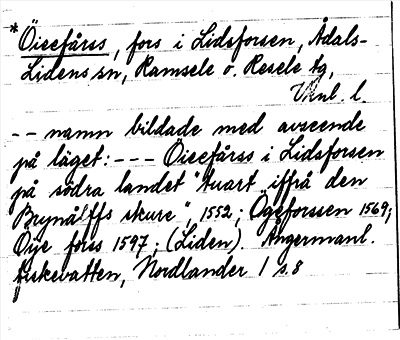 * Öieefårss, fors i Lidsforsen, Ådals-
Lidens sn, Ramsele o. Resele tg,
Vnl. l.
-- namn bildade med avseende
på läget: --- Öieefårss i Lidsforsen
på södra landet "tuart iffrå den
Brynålffs skure", 1552; Ögeforssen 1569;
Öije forss 1597; (Liden). Ångermanl.
fiskevatten, Nordlander 1 s. 8